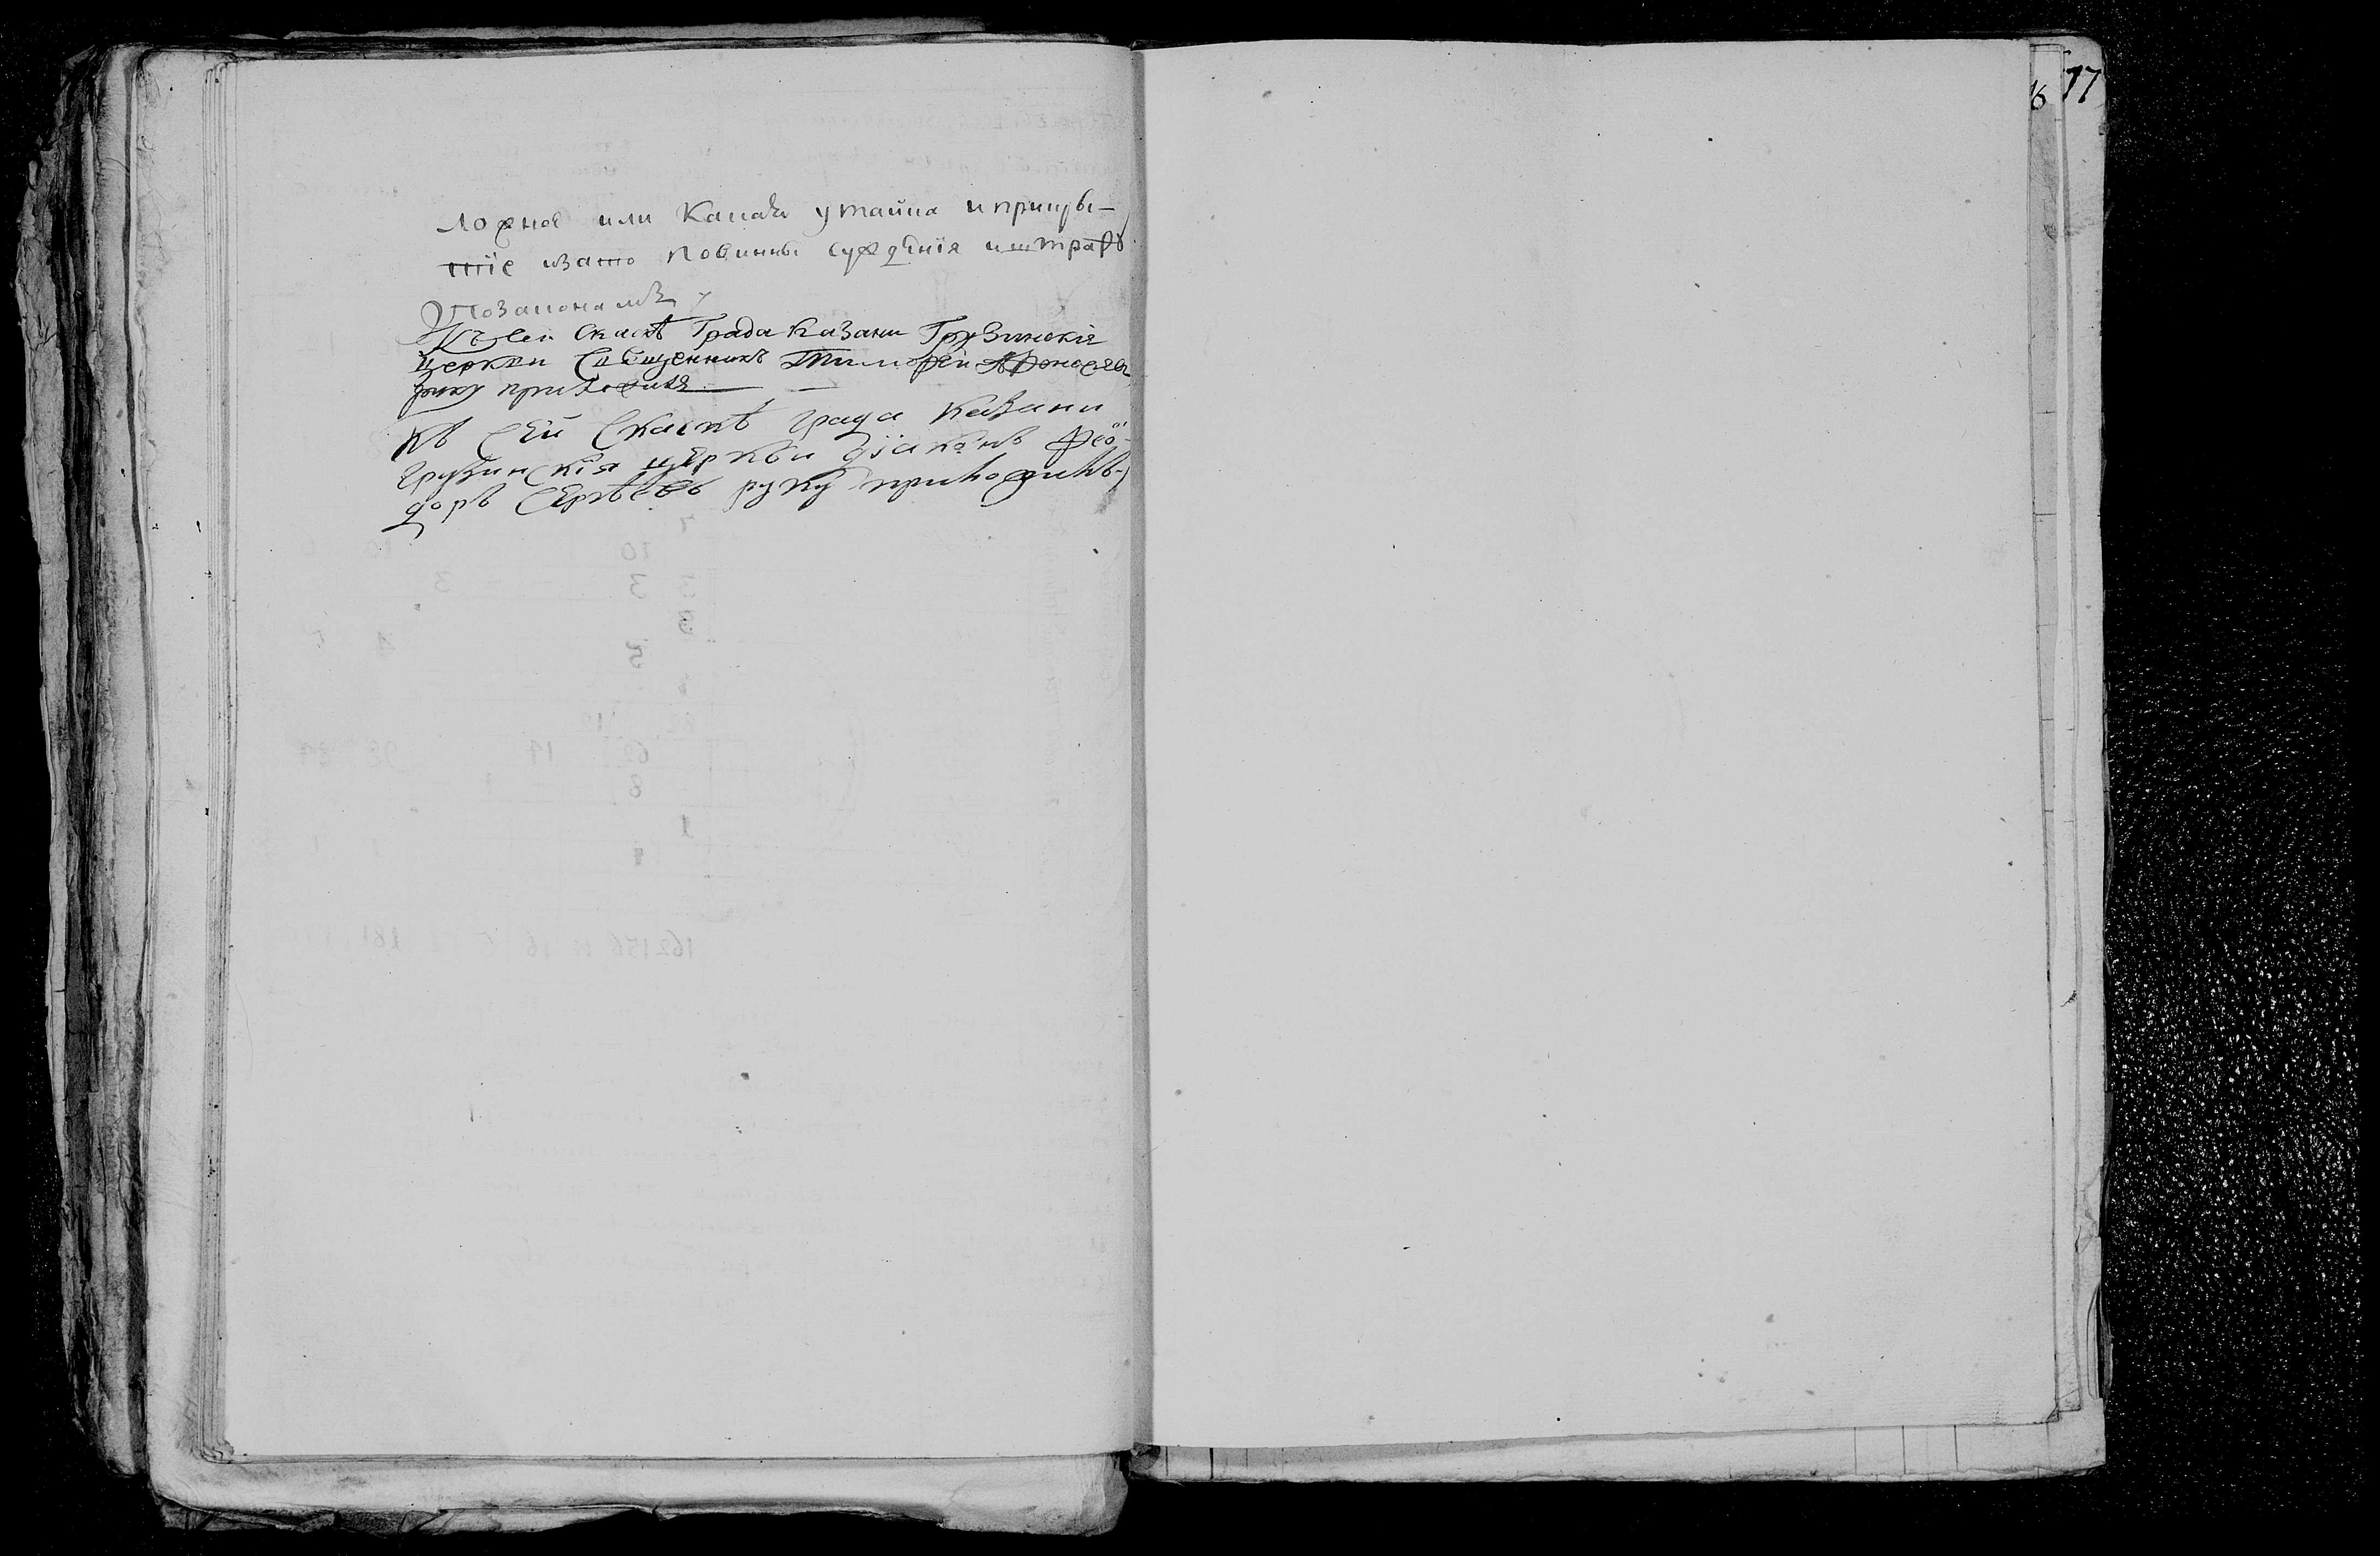 ложное или какая утайка и припры-
тие и за то повинны суждения и штрафу
по законамъ
Къ сей скаскѣ града Казани Грузинскiя
церкви священникъ Тимофей
руку приложилъ
Къ сей скаскѣ града Казани
Грузинскiя церкви дiаконъ Фео-
доръ Сергѣевъ руку приложилъ
16 17